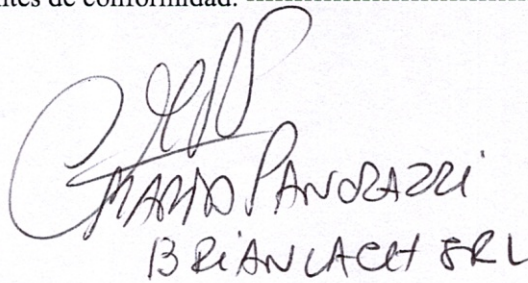 ntes de conformidad. --------------------
MARIO PANCRAZZI
BRIANCACH SRL